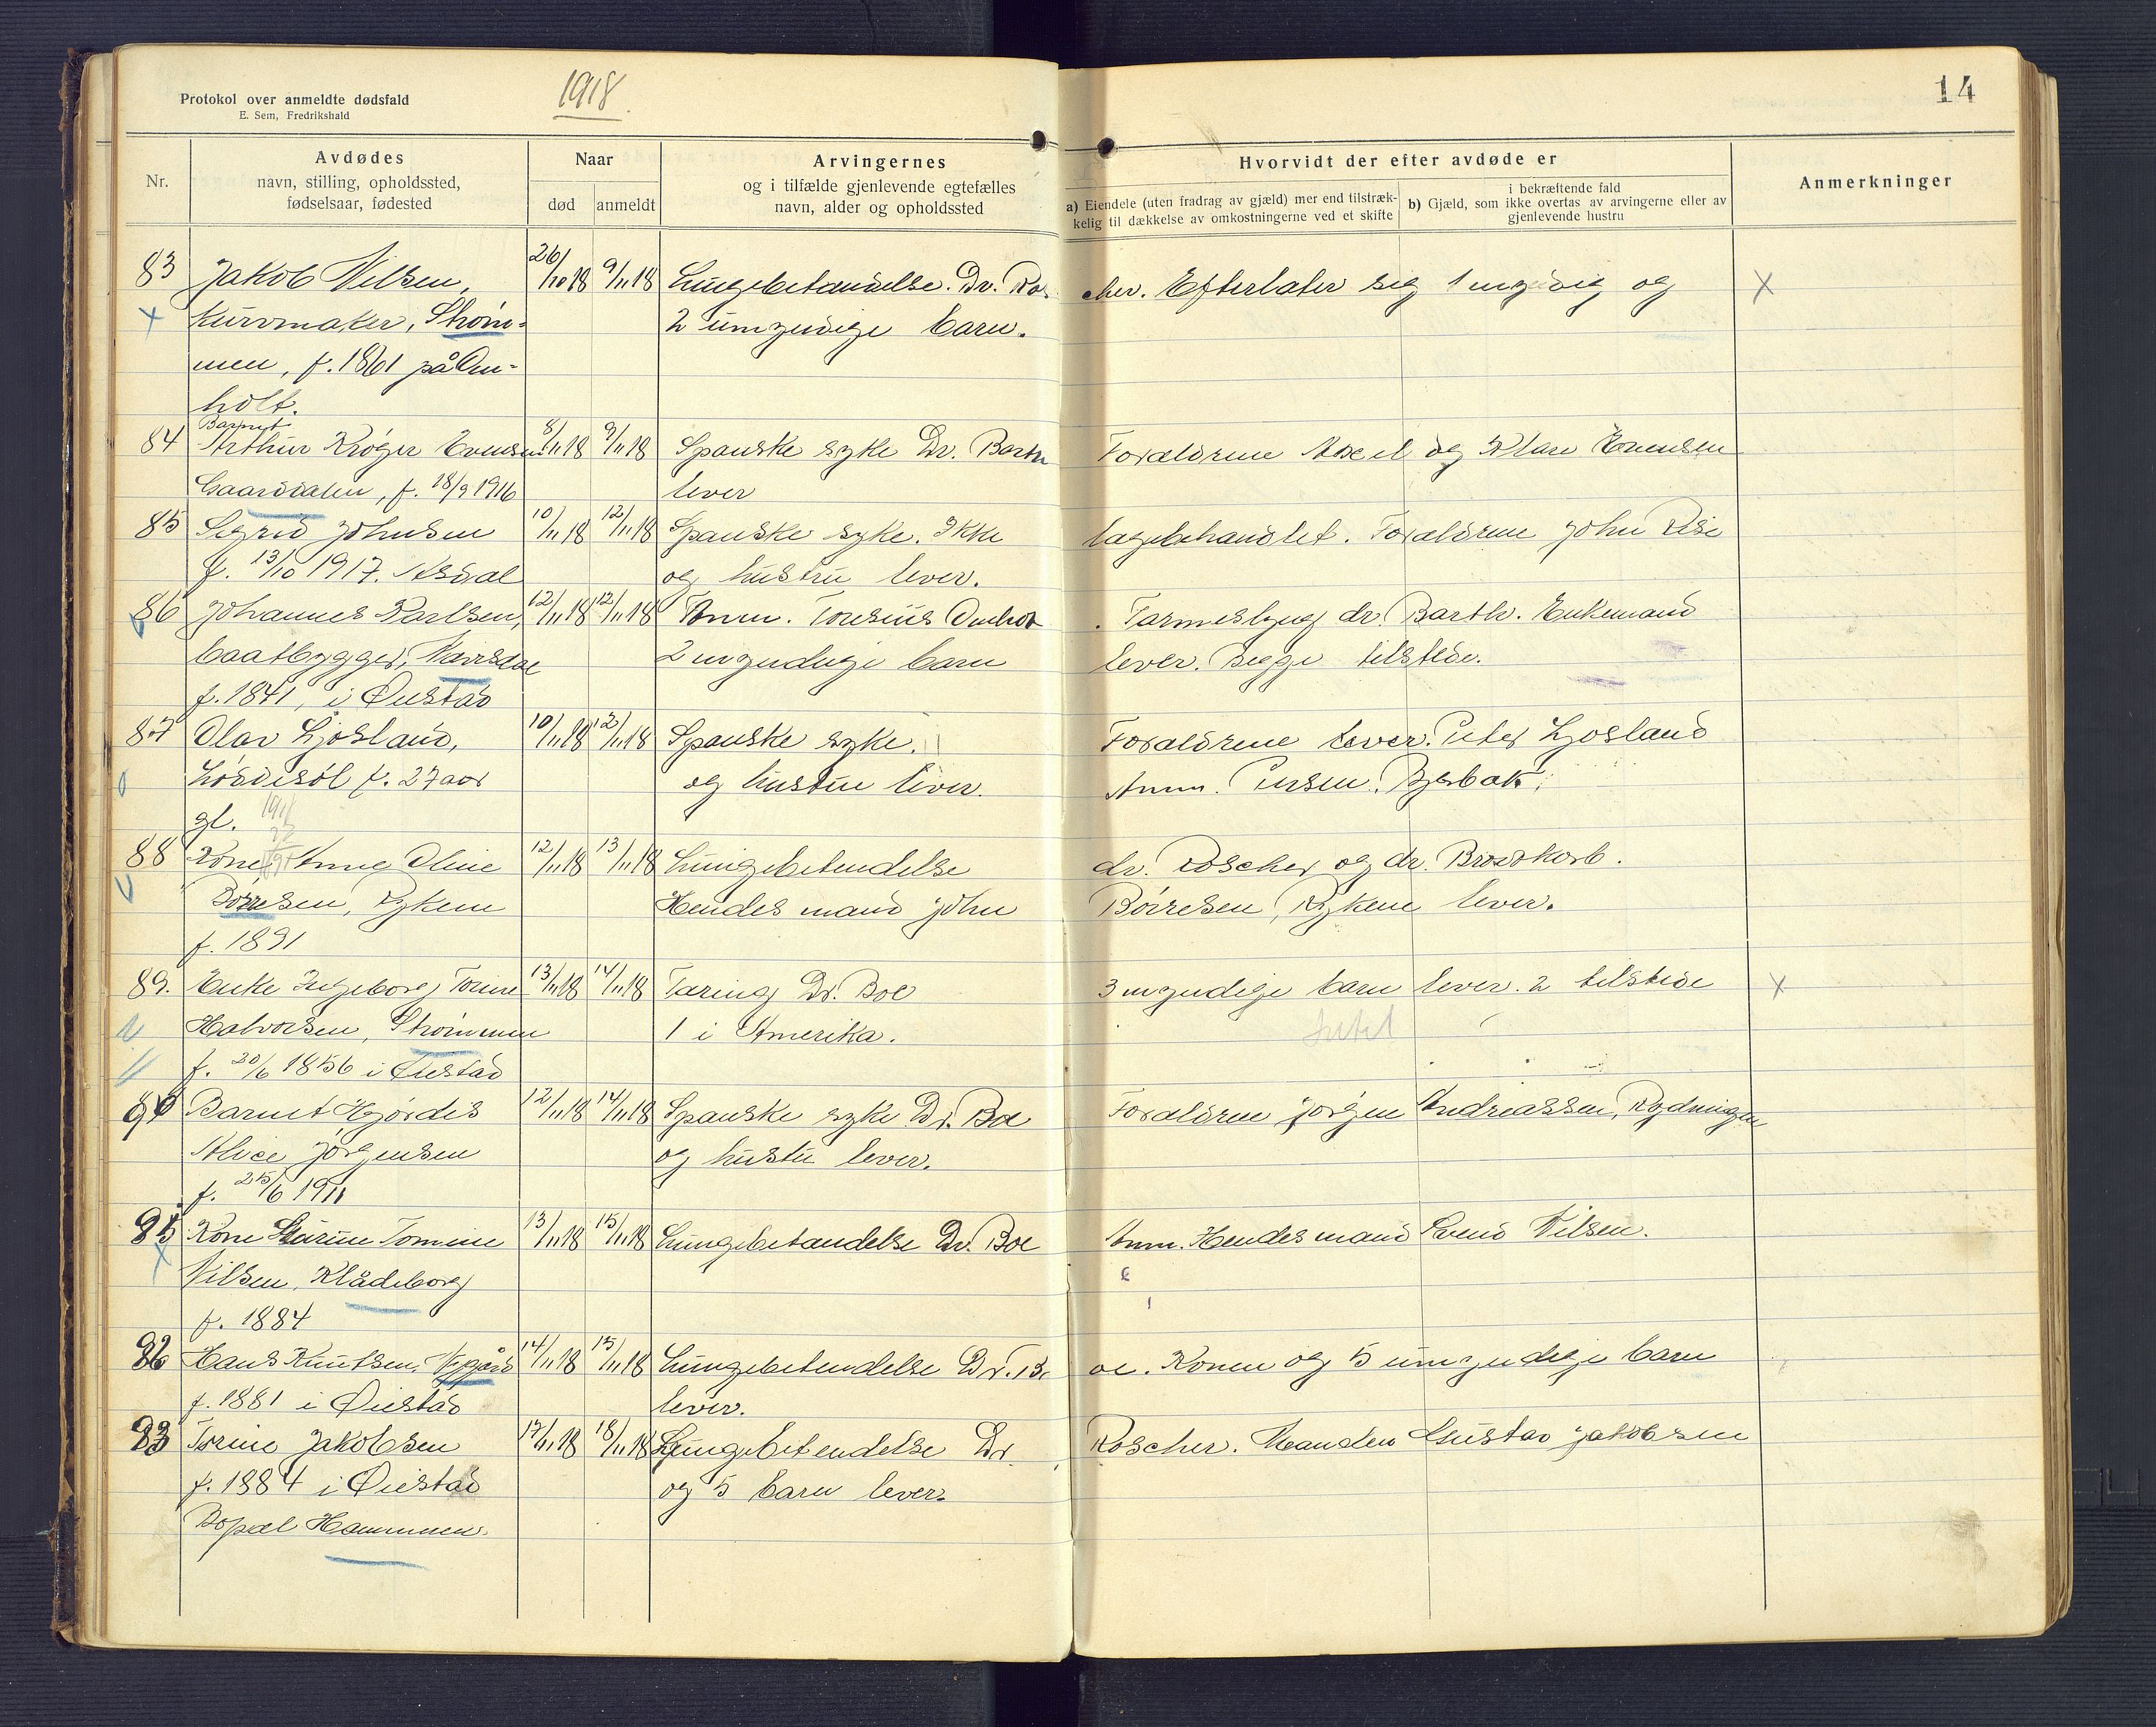 1918.
14
Protokol over anmeldte dødsfald
E. Sem, Fredrikshald
Nr.
Avdødes
navn, stilling, opholdssted,
fødselsaar, fødested
Naar
død
anmeldt
Arvingernes
og i tilfælde gjenlevende egtefælles
navn, alder og opholdssted
Hvorvidt der efter avdøde er
a) Eiendele (uten fradrag av gjæld) mer end tilstræk-
kelig til dækkelse av omkostningerne ved et skifte
i bekræftende fald
b) Gjæld, som ikke overtas av arvingerne eller av
gjenlevende hustru
Anmerkninger
83 Jakob Nilsen, 26/10 18 9/11 18 Lungebetændelse. Dr. Roscher. Efterlater sig 1 myndig og X
x Kurvmaker, Strøm- 2 umyndige barn.
men, f. 1861 på Om-
holt.
Barnet
84 Arthur Krøger Evensen 8/11 18 9/11 18 Spanske syke Dr. Barth Forældrene Axel og Klare Evensen
Gaarddalen, f. 18/9 1916 lever
85 Sigrid Johnsen 10/11 18 12/11 18 Spanske syke. Ikke lægebehandlet. Forældrene John Rise
f. 13/10 1917. Asdal og hustru lever.
86 Johannes Karlsen, 12/11 18 12/11 18 Anm. Tarmeslyng dr. Barth. Enkemand
baatbygger, 2 myndige barn lever. Begge tilstede.
f. 1841, i Øiestad
87 Olav Ljosland, 10/11 18 12/11 18 Spanske syke. Forældrene lever. Peter Ljosland
Løddesøl f. 27 aar og hustru lever. Anm.
gl.
88 Kone Anne Oline 12/11 18 13/11 18 Lungebetendelse dr. Roscher og dr. Brodkorb.
Børresen, Rykene Hendes mand John Børresen, Rykene lever.
f. 1891
89. Enke Ingeborg Torine 13/11 18 14/11 18 Tæring Dr. Boe 3 myndige barn lever. 2 tilstede X
Halvorsen, Strømmen 1 i Amerika. Intet
f. 20/6 1856 i Øiestad
90 Barnet Hjørdis 12/11 18 14/11 18 Spanske syke Dr. Boe Forældrene Jørgen Andreassen, Rydningen
Alice Jørgensen og hustu lever.
f. 25/6 1911
Kone Tomine 13/11 18 15/11 18 Lungebetændelse Dr. Boe Anm. Hendes mand Svend Nilsen.
Nilsen, Klådeborg
f. 1884
Hans Knutsen, 14/11 18 15/11 18 Lungebetendelse Dr. Boe. Konen og 5 umyndige barn
f. 1881 i Øiestad lever.
93 Torine Jakobsen 17/11 18 18/11 18 Lungebetendelse Dr. Roscher. Manden Gustav Jakobsen
f. 1884 i Øiestad og 5 barn lever.
Bopæl Hammeren.